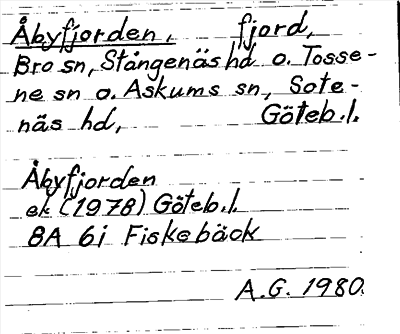 Åbyfjorden, fjord,
Bro sn, Stångenäs hd o. Tosse-
ne sn o. Askums sn, Sote-
näs hd, Göteb.l.
Åbyfjorden
ek (1978) Göteb.l.
8A 6i Fiskebäck
A.G. 1980.